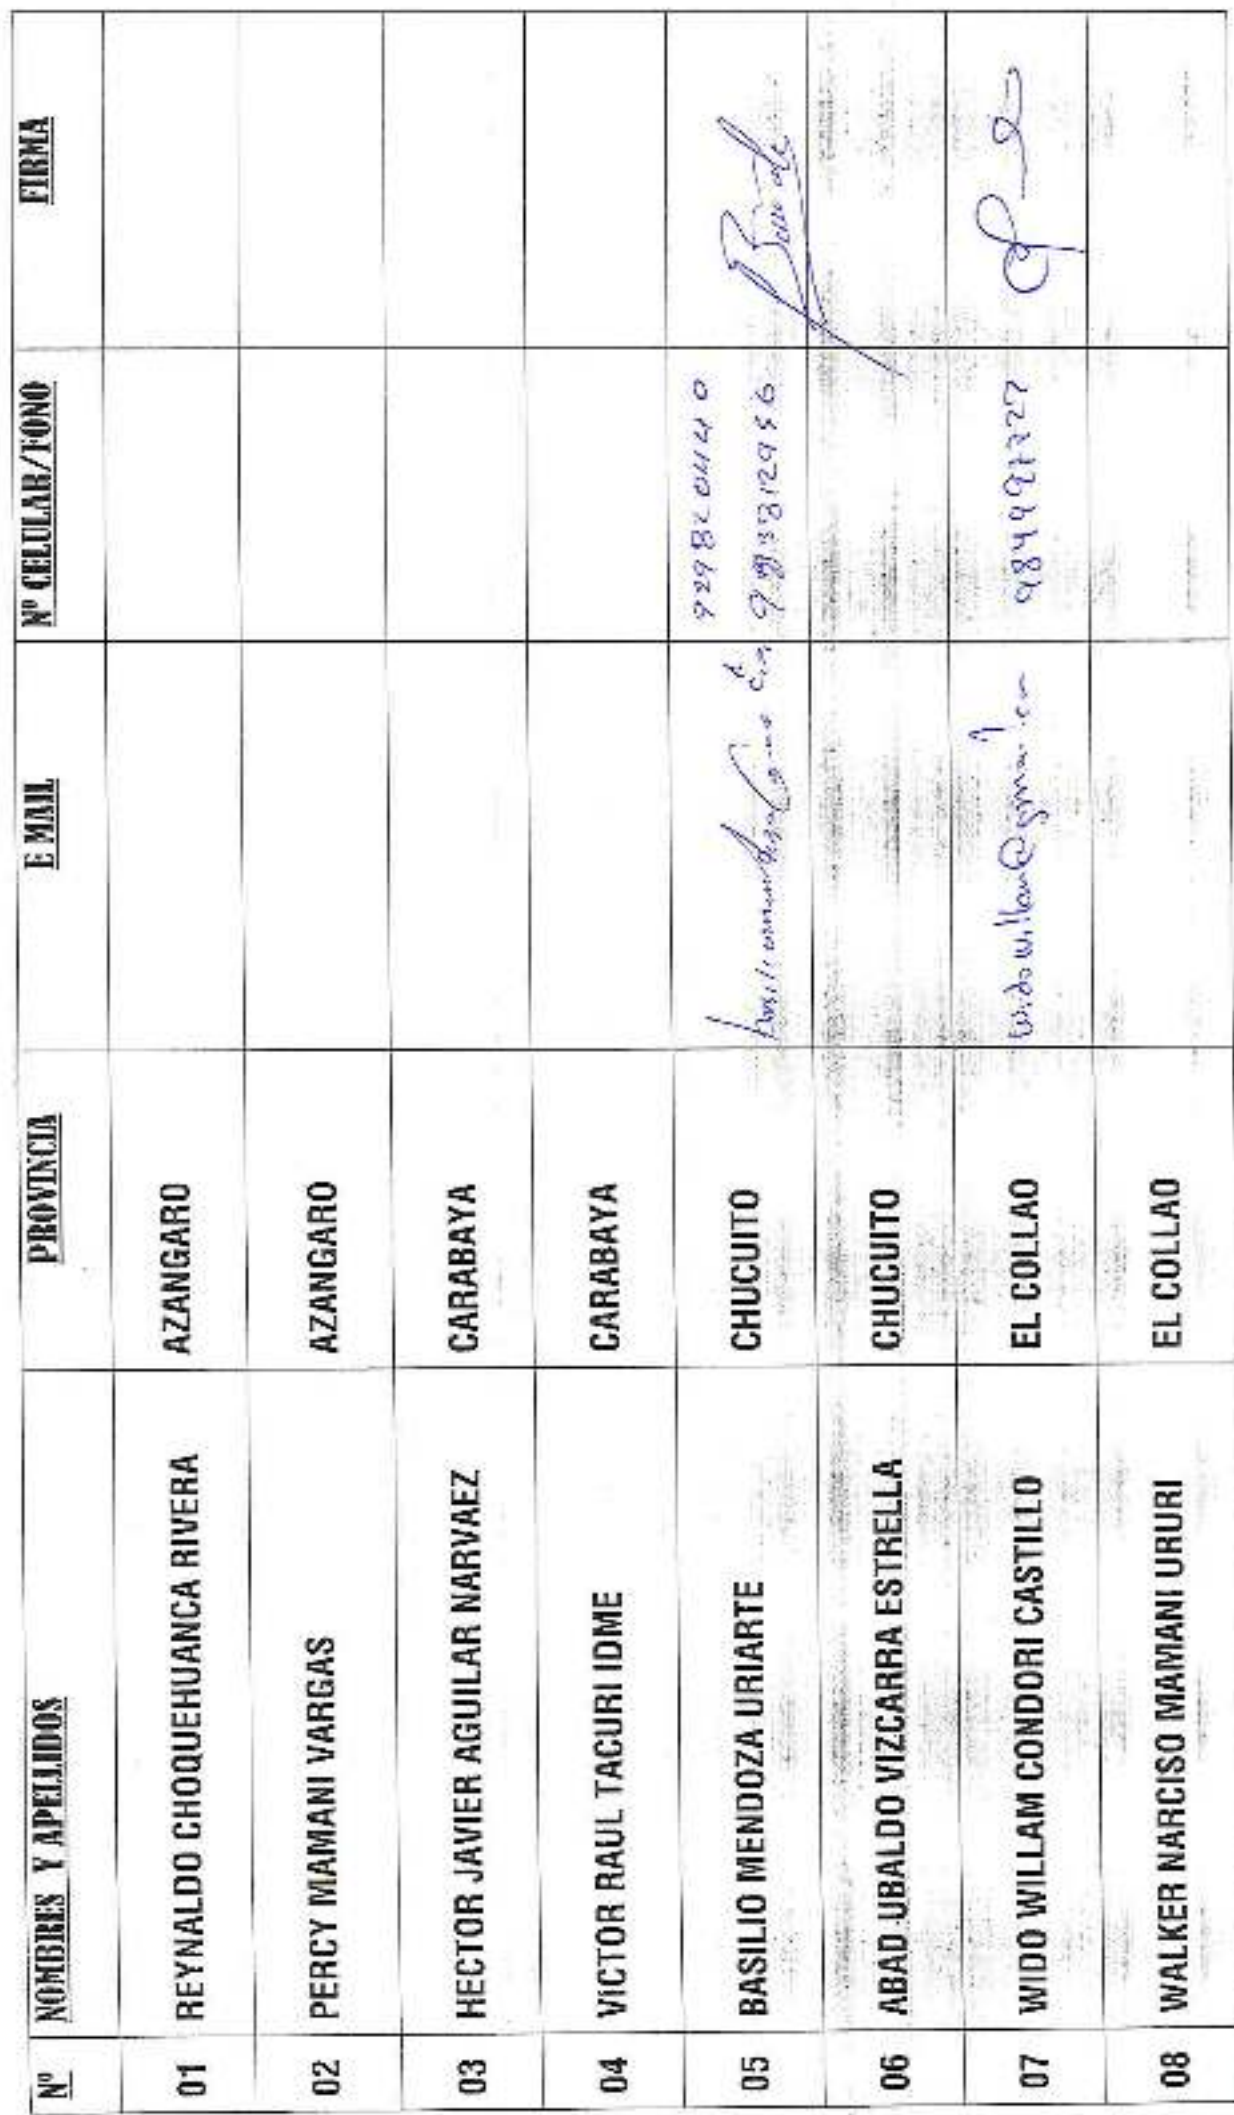 Nº NOMBRES Y APELLIDOS PROVINCIA E MAIL Nº CELULAR/FONO FIRMA
01 REYNALDO CHOQUEHUANCA RIVERA AZANGARO
02 PERCY MAMANI VARGAS AZANGARO
03 HECTOR JAVIER AGUILAR NARVAEZ CARABAYA
04 VICTOR RAUL TACURI IDME CARABAYA
05 BASILIO MENDOZA URIARTE CHUCUITO
06 ABAD UBALDO VIZCARRA ESTRELLA CHUCUITO
07 WIDO WILLAM CONDORI CASTILLO EL COLLAO 984997727
08 WALKER NARCISO MAMANI URURI EL COLLAO